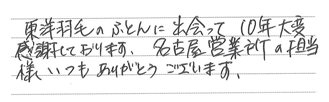 東洋羽毛のふとんに出会って10年大変
感謝しております。名古屋営業所の担当
様いつもありがとうございます。